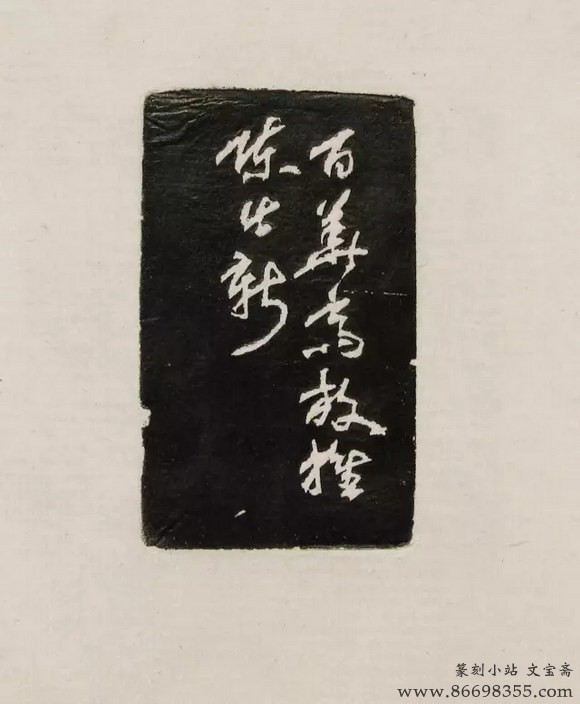 百華齊放推
陈出新
篆刻小站 文宝斋
www.86698355.com